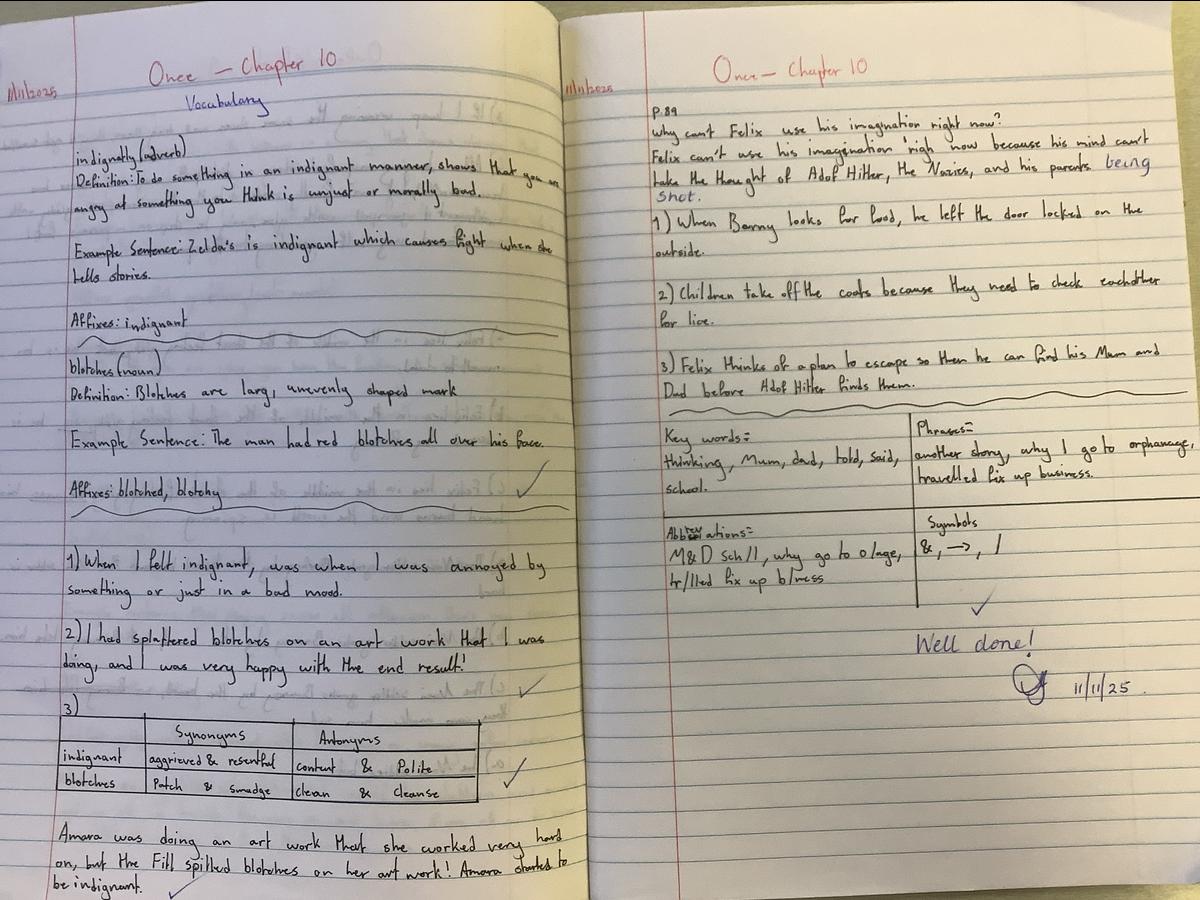 Once - Chapter 10
11/11/2025
Vocabulary
indignatly (adverb)
Definition: To do something in an indignant manner, shows that you are
angry at something you think is unjust or morally bad.
Example Sentence: Zelda's is indignant which causes fight when she
tells stories.
Affixes: indignant
blotches (noun)
Definition: Blotches are larg, unevenly shaped mark
Example Sentence: The man had red blotches all over his face.
Affixes: blotched, blotchy
1) When I felt indignant, was when I was annoyed by
something or just in a bad mood.
2) I had splattered blotches on an art work that I was
doing, and I was very happy with the end result!
3)
Synonyms Antonyms
indignant aggrieved & resentful content & Polite
blotches Patch & smudge clean & cleanse
Amara was doing an art work that she worked very hard
on, but the Fill spilled blotches on her art work! Amara started to
be indignant.
Once - Chapter 10
11/11/2025
P.89
Why can't Felix use his imagination right now?
Felix can't use his imagenation righ now because his mind can't
take the thought of Adof Hitler, the Nazies, and his parents being
shot.
1) When Barny looks for food, he left the door locked on the
outside.
2) Children take off the coats because they need to check eachother
for lice.
3) Felix thinks of a plan to escape so then he can find his Mum and
Dad before Adof Hitler finds them.
Key words=
thinking, Mum, dad, told, said,
school.
Phrases=
another story, why I go to orphanage,
travelled fix up business.
Abbreviations=
M&D sch/l, why go to o/age,
tr/lled fix up b/ness
Symbols
&, →, /
Well done!
11/11/25.